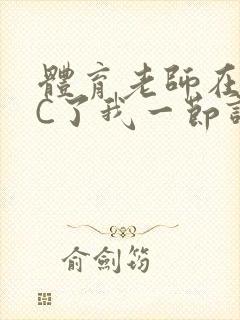 體育老師在
C了我一節
俞劍筠